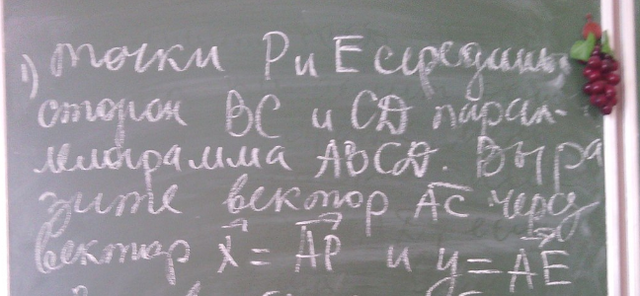 1) точки P и E середины
сторон BC и CD парал-
лелограмма ABCD. Выра
зите вектор AC через
вектор x = AP и y = AE